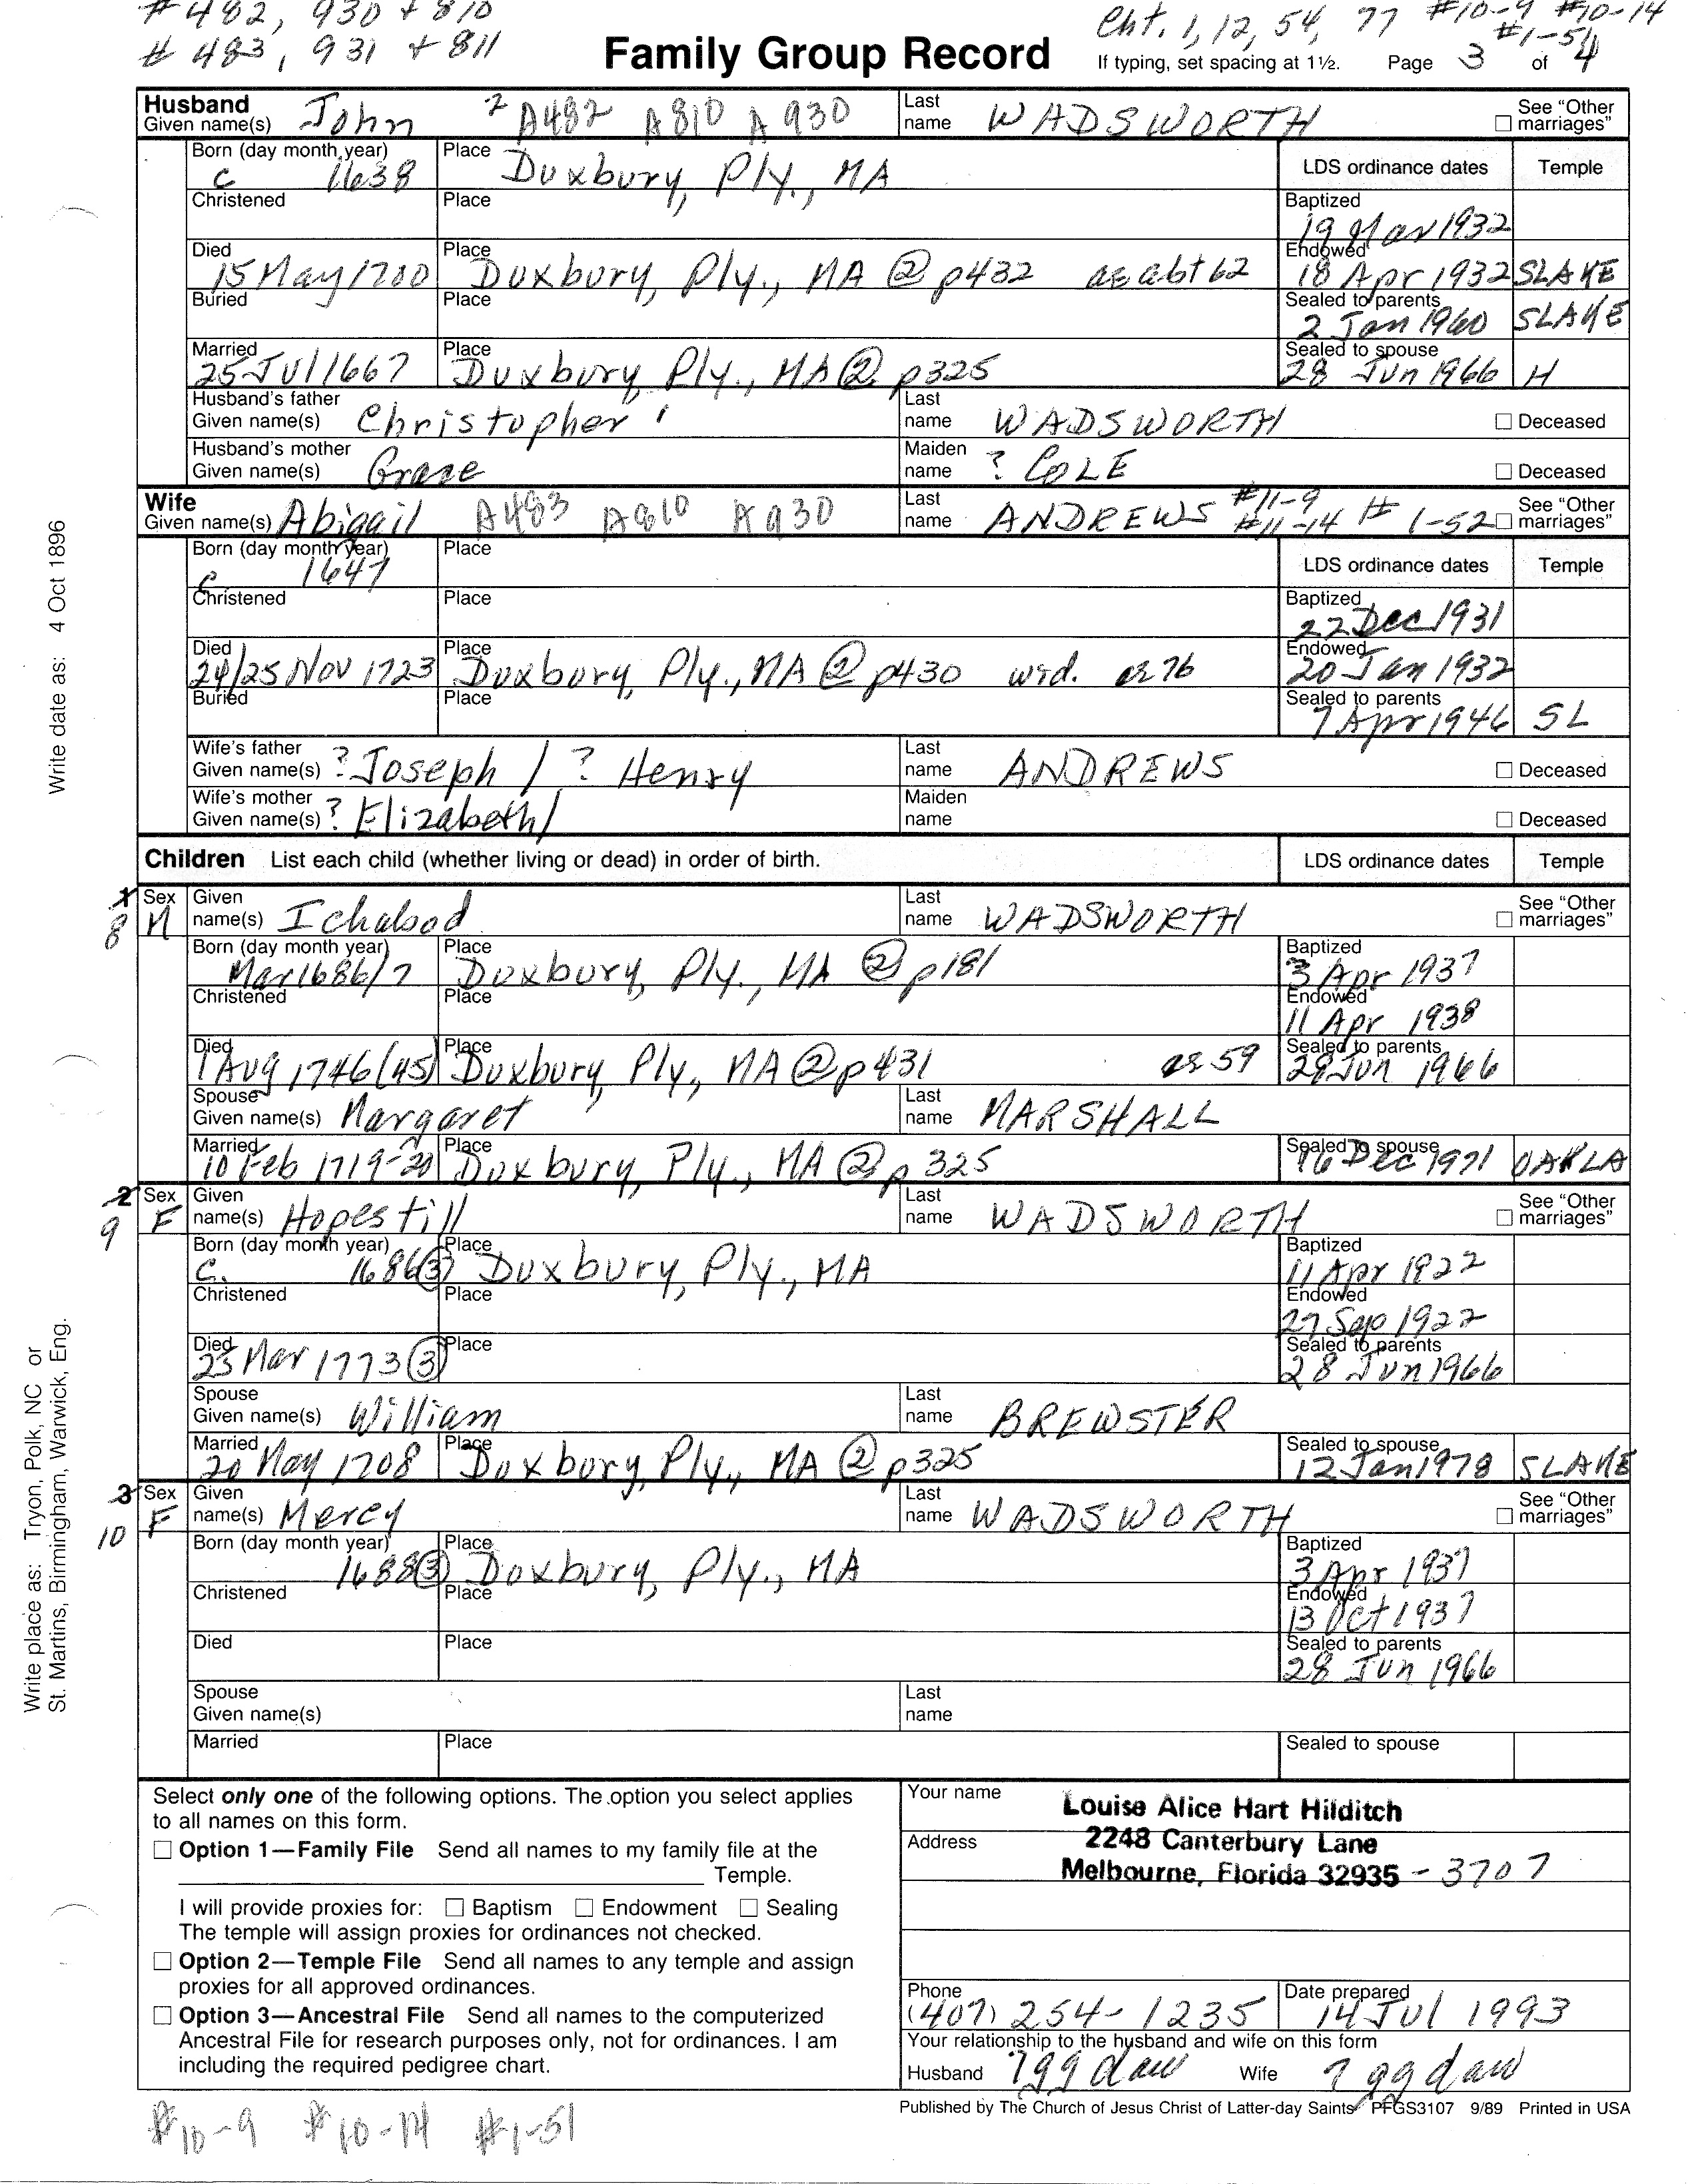 # 482, 930 + 810
# 483, 931 + 811
Cht. 1, 12, 54, 77 #10-9 #10-14
#1-51
Family Group Record
If typing, set spacing at 1½. Page 3 of 4
Husband
Given name(s) John 2 A482 A810 A930 Last name WADSWORTH ☐ See "Other marriages"
Born (day month year) c 1638 Place Duxbury, Ply., MA LDS ordinance dates Temple
Christened Place Baptized 19 Mar 1932
Died 15 May 1700 Place Duxbury, Ply., MA ② p432 ae abt 62 Endowed 18 Apr 1932 SLAKE
Buried Place Sealed to parents 2 Jan 1960 SLAKE
Married 25 Jul 1667 Place Duxbury Ply., MA ② p325 Sealed to spouse 28 Jun 1966 H
Husband's father Given name(s) Christopher 1 Last name WADSWORTH ☐ Deceased
Husband's mother Given name(s) Grace Maiden name ? COLE ☐ Deceased
Wife
Given name(s) Abigail A483 A810 A930 Last name ANDREWS #11-9 #11-14 # 1-52 ☐ See "Other marriages"
Born (day month year) c 1647 Place LDS ordinance dates Temple
Christened Place Baptized 22 Dec 1931
Died 24/25 Nov 1723 Place Duxbury, Ply., MA ② p430 wid. ae 76 Endowed 20 Jan 1932
Buried Place Sealed to parents 7 Apr 1946 SL
Wife's father Given name(s) ? Joseph / ? Henry Last name ANDREWS ☐ Deceased
Wife's mother Given name(s) ? Elizabeth/ Maiden name ☐ Deceased
Children List each child (whether living or dead) in order of birth. LDS ordinance dates Temple
1 8 Sex M Given name(s) Ichabod Last name WADSWORTH ☐ See "Other marriages"
Born (day month year) Mar 1686/7 Place Duxbury, Ply., MA ② p181 Baptized 3 Apr 1937
Christened Place Endowed 11 Apr 1938
Died 1 Aug 1746 (45) Place Duxbury, Ply., MA ② p431 ae 59 Sealed to parents 28 Jun 1966
Spouse Given name(s) Margaret Last name MARSHALL
Married 10 Feb 1719-20 Place Duxbury, Ply., MA ② p 325 Sealed to spouse 16 Dec 1971 OAKLA
2 9 Sex F Given name(s) Hopestill Last name WADSWORTH ☐ See "Other marriages"
Born (day month year) C. 1686 ③ Place Duxbury, Ply., MA Baptized 11 Apr 1922
Christened Place Endowed 27 Sep 1922
Died 23 Mar 1773 ③ Place Sealed to parents 28 Jun 1966
Spouse Given name(s) William Last name BREWSTER
Married 20 May 1708 Place Duxbury, Ply., MA ② p325 Sealed to spouse 12 Jan 1978 SLAKE
3 10 Sex F Given name(s) Mercy Last name WADSWORTH ☐ See "Other marriages"
Born (day month year) 1688 ③ Place Duxbury, Ply., MA Baptized 3 Apr 1937
Christened Place Endowed 13 Oct 1937
Died Place Sealed to parents 28 Jun 1966
Spouse Given name(s) Last name
Married Place Sealed to spouse
Write date as: 4 Oct 1896
Write place as: Tryon, Polk, NC or
St. Martins, Birmingham, Warwick, Eng.
Select only one of the following options. The option you select applies
to all names on this form.
☐ Option 1—Family File Send all names to my family file at the
Temple.
I will provide proxies for: ☐ Baptism ☐ Endowment ☐ Sealing
The temple will assign proxies for ordinances not checked.
☐ Option 2—Temple File Send all names to any temple and assign
proxies for all approved ordinances.
☐ Option 3—Ancestral File Send all names to the computerized
Ancestral File for research purposes only, not for ordinances. I am
including the required pedigree chart.
Your name Louise Alice Hart Hilditch
Address 2248 Canterbury Lane
Melbourne, Florida 32935 - 3707
Phone (407) 254-1235 Date prepared 14 Jul 1993
Your relationship to the husband and wife on this form
Husband 7 gg dau Wife 7 gg dau
Published by The Church of Jesus Christ of Latter-day Saints PFGS3107 9/89 Printed in USA
#10-9 #10-14 #1-51